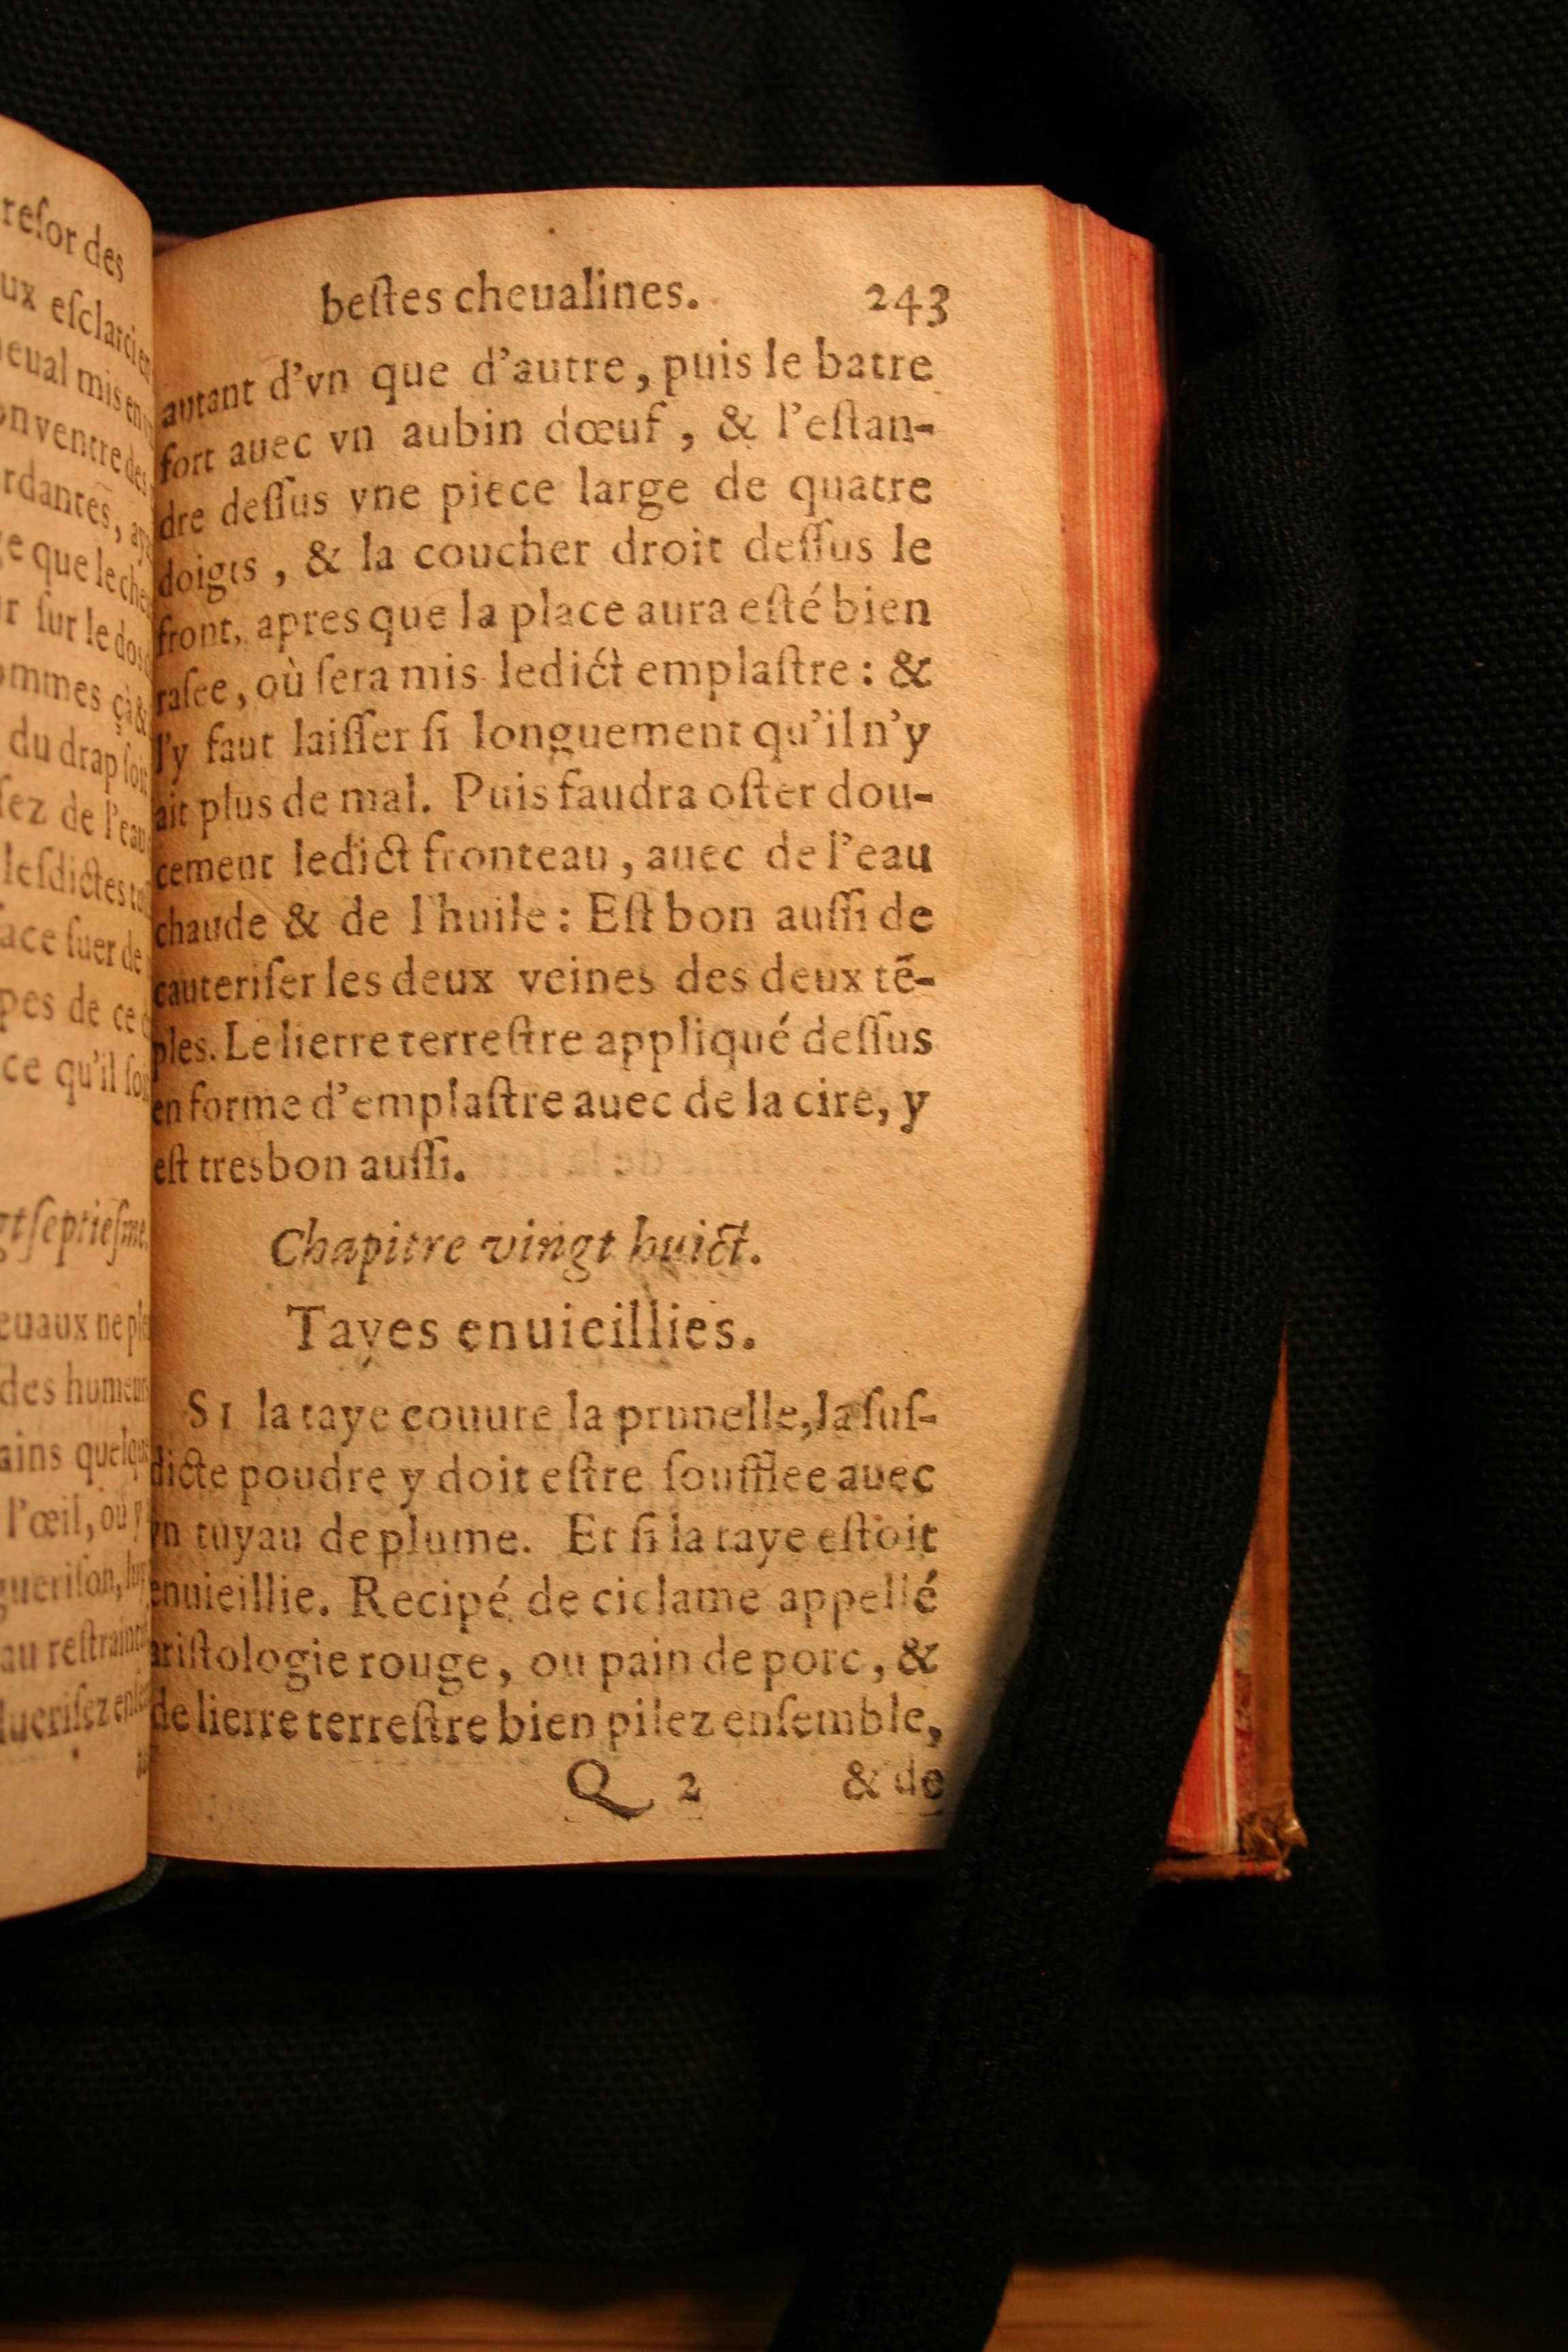 resor des
ux esclarci
eual mis en
on ventre des
rdantes,
ge que le
r sur le dos
ommes çà &
du drap soit
sez de l'eau
lesdictes
ace suer de
pes de ce
ce qu'il
gtseptiesme.
euaux ne
des humeurs
ains quelque
l'œil, ou y
guerison,
au
bestes cheualines. 243
autant d'vn que d'autre, puis le batre
fort auec vn aubin dœuf, & l'estan-
dre dessus vne piece large de quatre
doigts, & la coucher droit dessus le
front, apres que la place aura esté bien
rasee, où sera mis ledict emplastre: &
l'y faut laisser si longuement qu'il n'y
ait plus de mal. Puis faudra oster dou-
cement ledict fronteau, auec de l'eau
chaude & de l'huile: Est bon aussi de
cauteriser les deux veines des deux tē-
ples. Le lierre terrestre appliqué dessus
en forme d'emplastre auec de la cire, y
est tresbon aussi.
Chapitre vingt huict.
Tayes enuieillies.
SI la taye couure la prunelle, la sus-
dicte poudre y doit estre soufflee auec
vn tuyau de plume. Et si la taye estoit
enuieillie. Recipé de ciclame appellé
aristologie rouge, ou pain de porc, &
de lierre terrestre bien pilez ensemble,
Q 2 & de